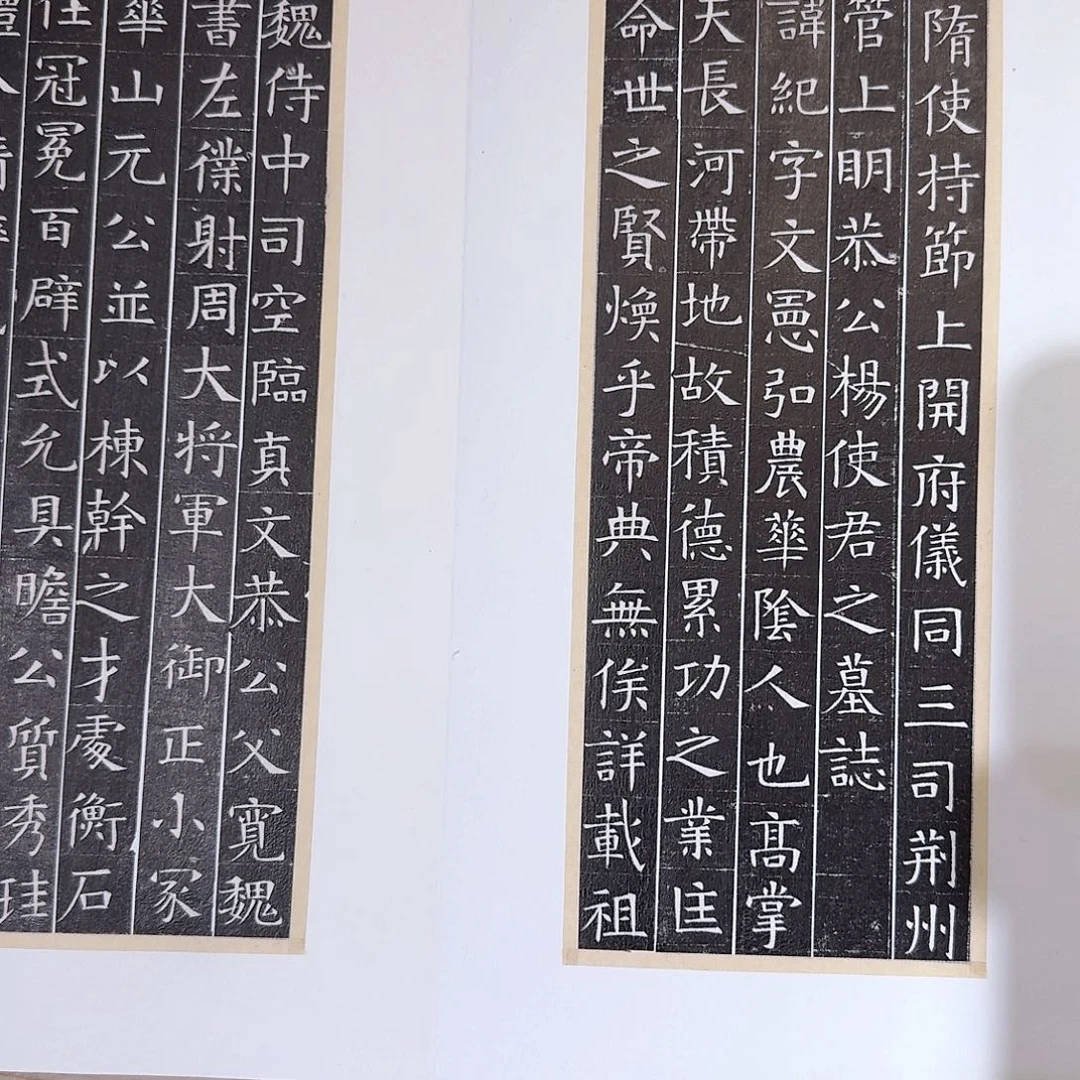 隋使持節上開府儀同三司荆州
管上眀恭公楊使君之墓誌
諱紀字文憲弘農華陰人也高掌
天長河帶地故積德累功之業匡
命世之賢煥乎帝典無俟詳載祖
魏侍中司空臨真文恭公父寬魏
書左僕射周大将軍大御正小冢
華山元公並以棟幹之才處衡石
任冠冕百辟式允具瞻公質秀珪